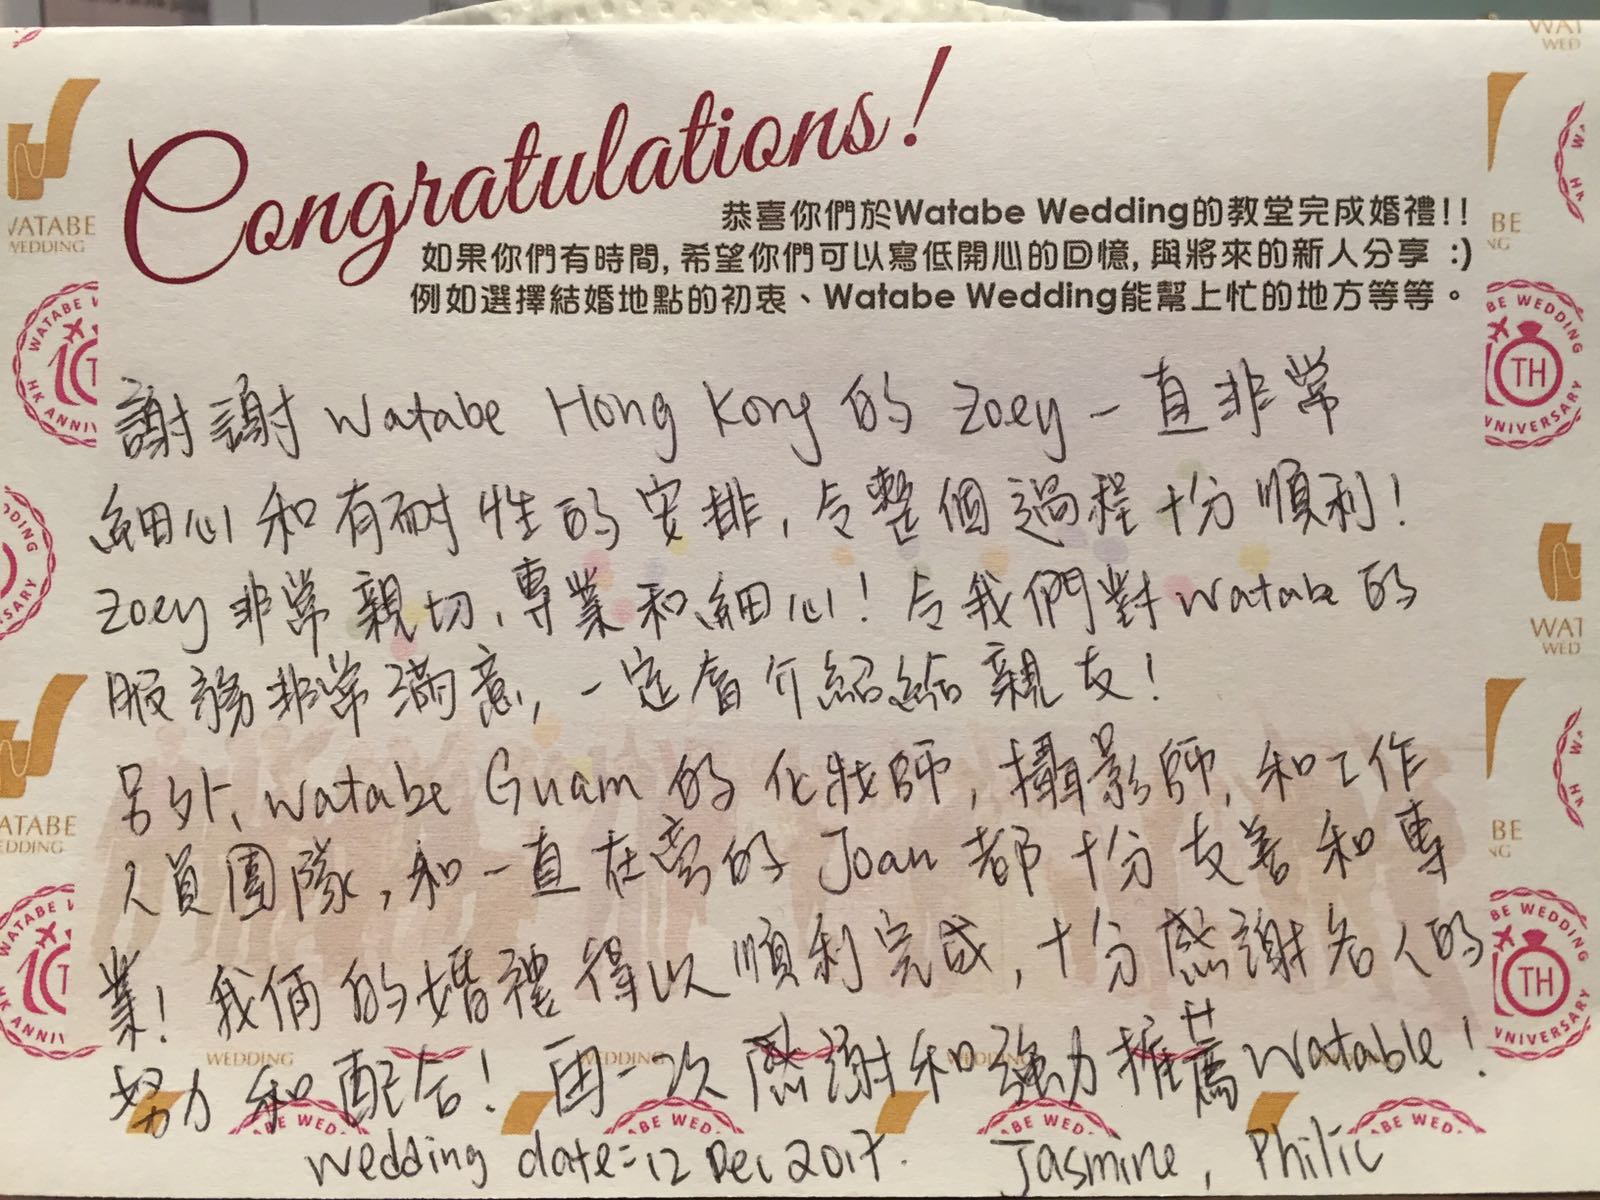 Congratulations!
恭喜你們於Watabe Wedding的教堂完成婚禮!!
如果你們有時間, 希望你們可以寫低開心的回憶, 與將來的新人分享 :)
例如選擇結婚地點的初衷、Watabe Wedding能幫上忙的地方等等。
謝謝 Watabe Hong Kong 的 Zoey 一直非常
細心和有耐性的安排, 令整個過程十分順利!
Zoey 非常親切, 專業和細心! 令我們對 Watabe 的
服務非常滿意, 一定會介紹給親友!
另外, Watabe Guam 的化妝師, 攝影師, 和工作
人員團隊, 和一直在旁的 Joan 都十分友善和專
業! 我倆的婚禮得以順利完成, 十分感謝各人的
努力和配合! 再一次感謝和強力推薦 Watable!
Wedding date = 12 Dec 2017. Jasmine, Philic
WATABE
WEDDING
WATABE WEDDING
HK ANNIVERSARY
10TH